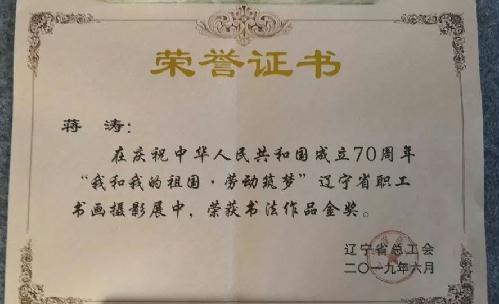 荣誉证书
蒋 涛：
在庆祝中华人民共和国成立70周年
“我和我的祖国·劳动筑梦”辽宁省职工
书画摄影展中，荣获书法作品金奖。
辽宁省总工会
二〇一九年六月